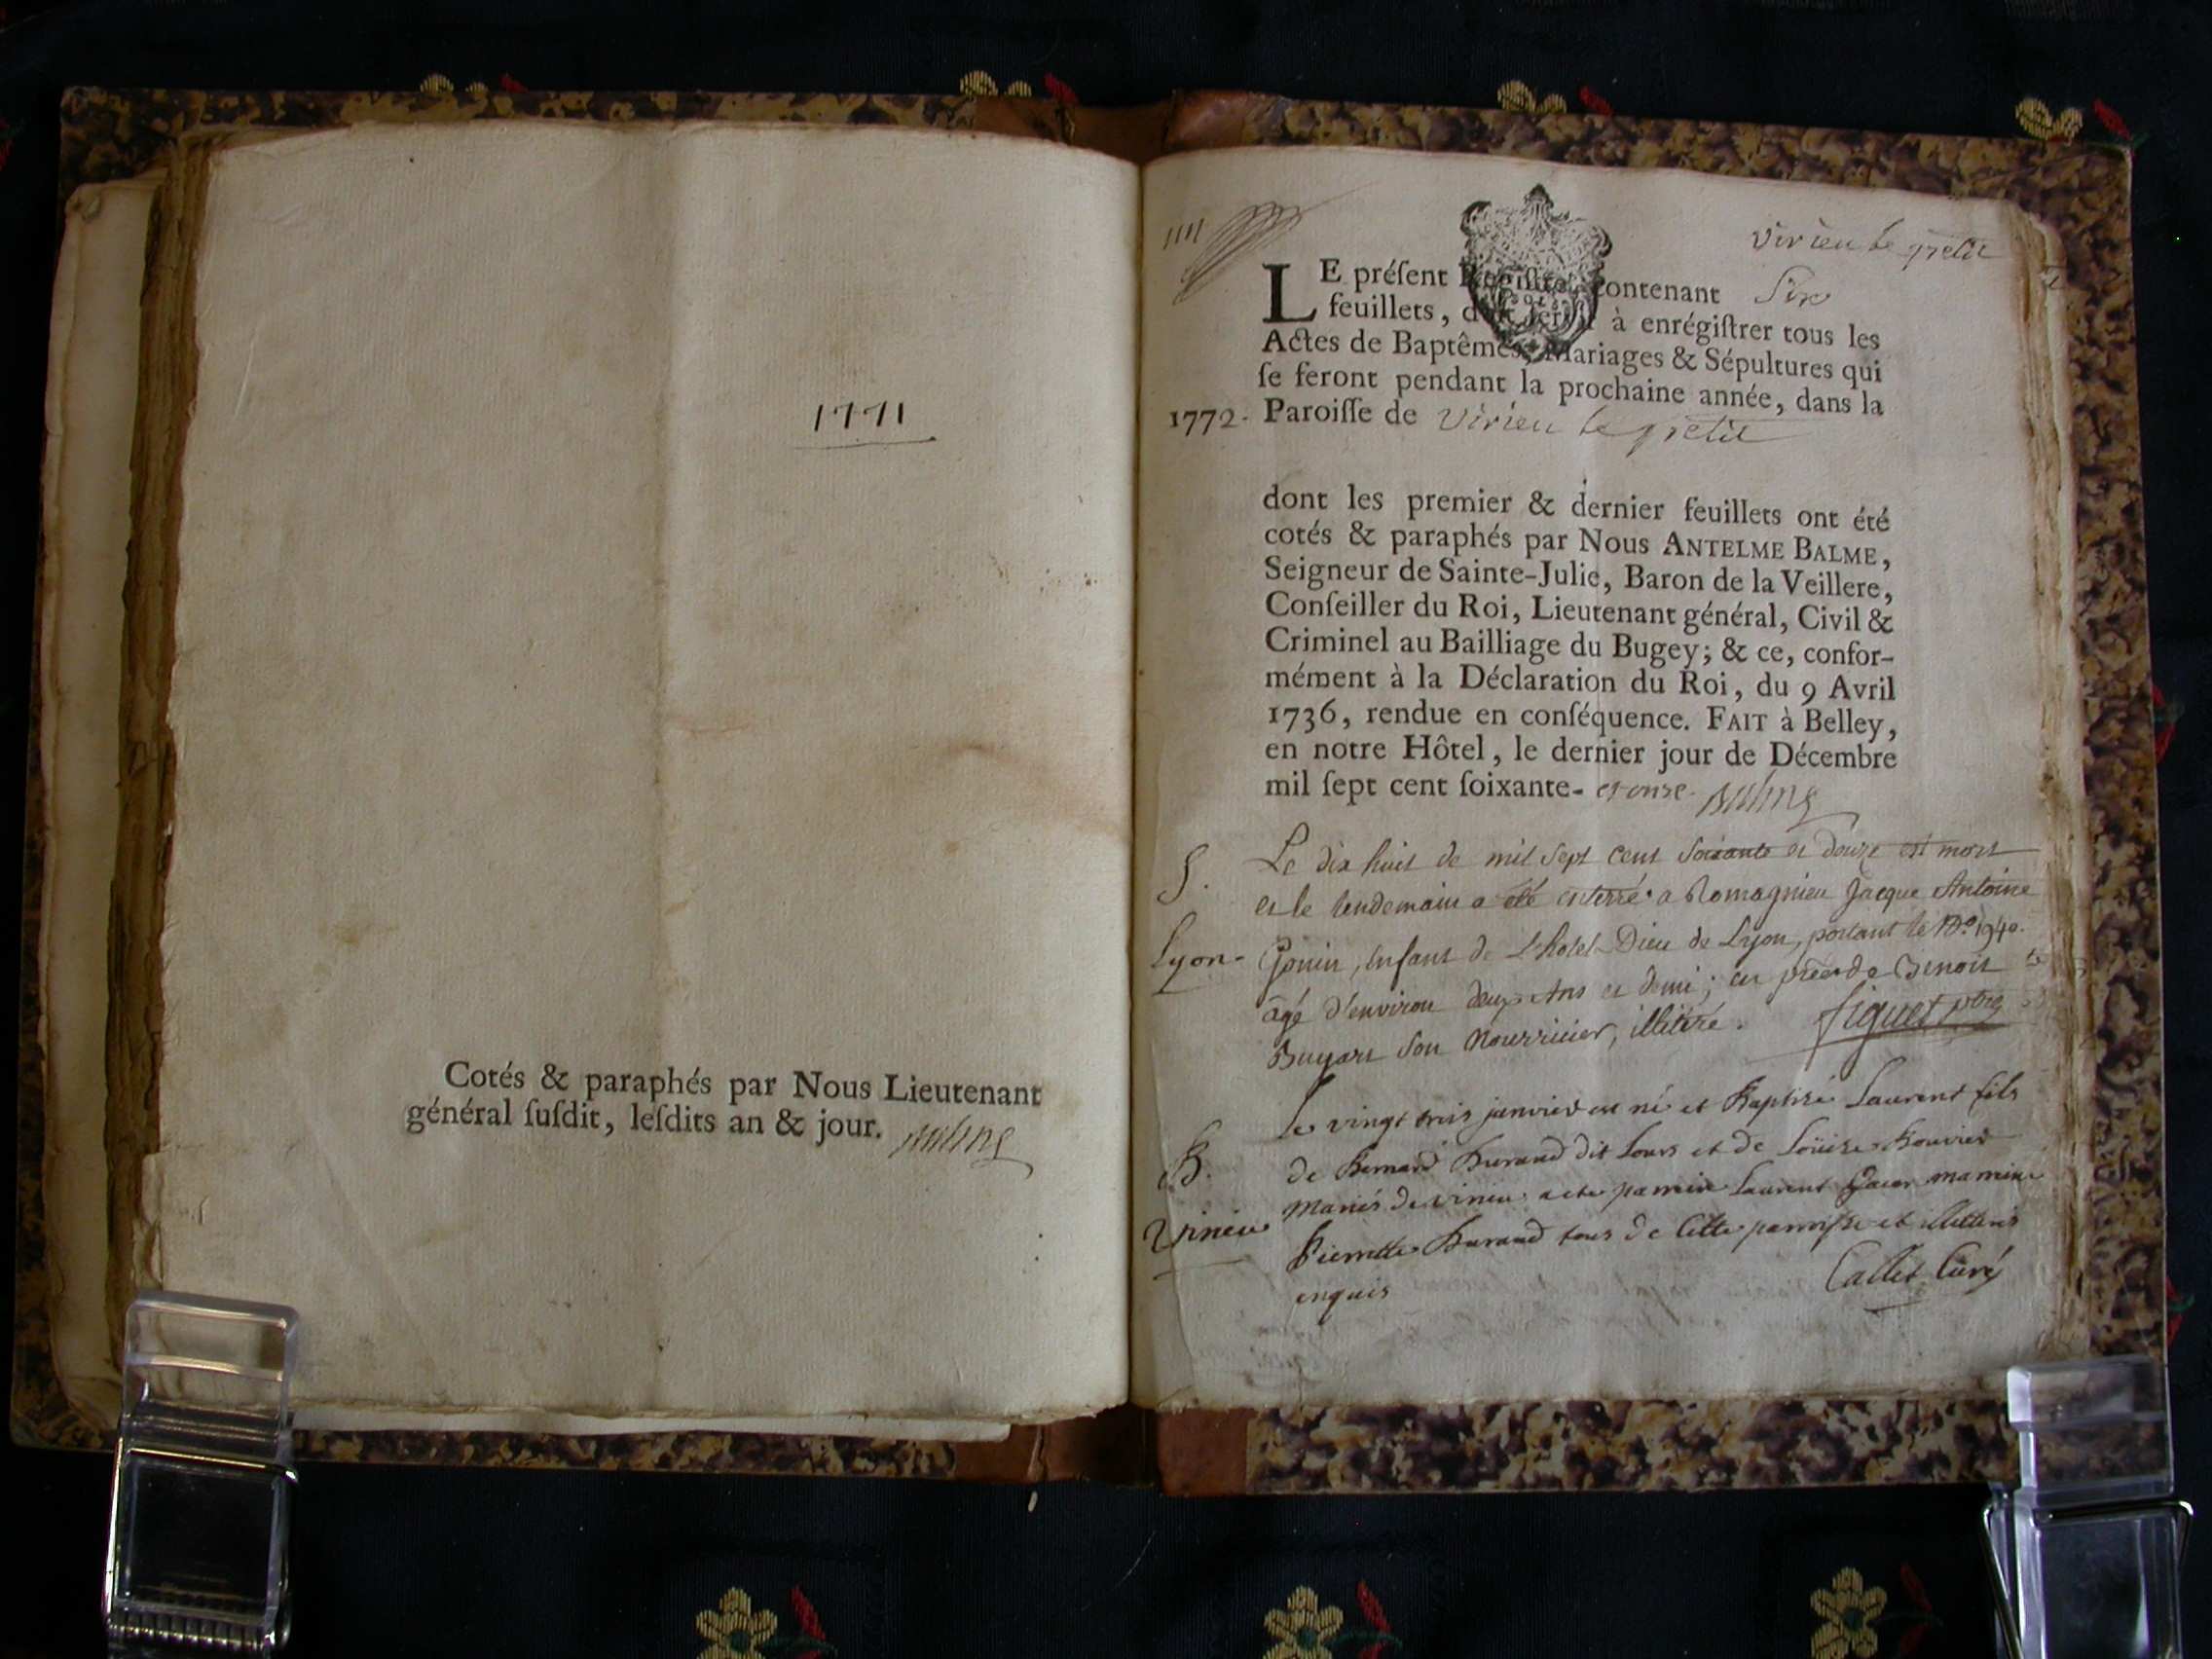 1771
Cotés & paraphés par Nous Lieutenant
général ſuſdit, leſdits an & jour.
Virieu le petit
LE préſent Regiſtre contenant Six
feuillets, doit ſervir à enrégiſtrer tous les
Actes de Baptêmes, Mariages & Sépultures qui
ſe feront pendant la prochaine année, dans la
1772. Paroiſſe de Virieu le petit
dont les premier & dernier feuillets ont été
cotés & paraphés par Nous ANTELME BALME,
Seigneur de Sainte-Julie, Baron de la Veillere,
Conſeiller du Roi, Lieutenant général, Civil &
Criminel au Bailliage du Bugey; & ce, confor-
mément à la Déclaration du Roi, du 9 Avril
1736, rendue en conſéquence. FAIT à Belley,
en notre Hôtel, le dernier jour de Décembre
mil ſept cent ſoixante- et onze. Balme
S. Le dix huit de mil Sept Cent Soixante et douze est mort
et le lendemain a été enterré a Romagnieu Jacque Antoine
Lyon- Gonin, Enfant de L'hotel-Dieu de Lyon, portant le No. 1940.
âgé d'environ deux Ans et demi; en prèe de Benoit
Buyart Son Nourricier, illitéré. figuet ptre
Le vingt trois janvier est né et Baptisé Laurent fils
B. de Bernard Durand dit Lours et de Loüise Bouvier
Mariés de vinieu a été parrein Laurent marreine
Vinieu Pierrette Durand tous de Cette parroisse et illitterés
enquis Callet Curé